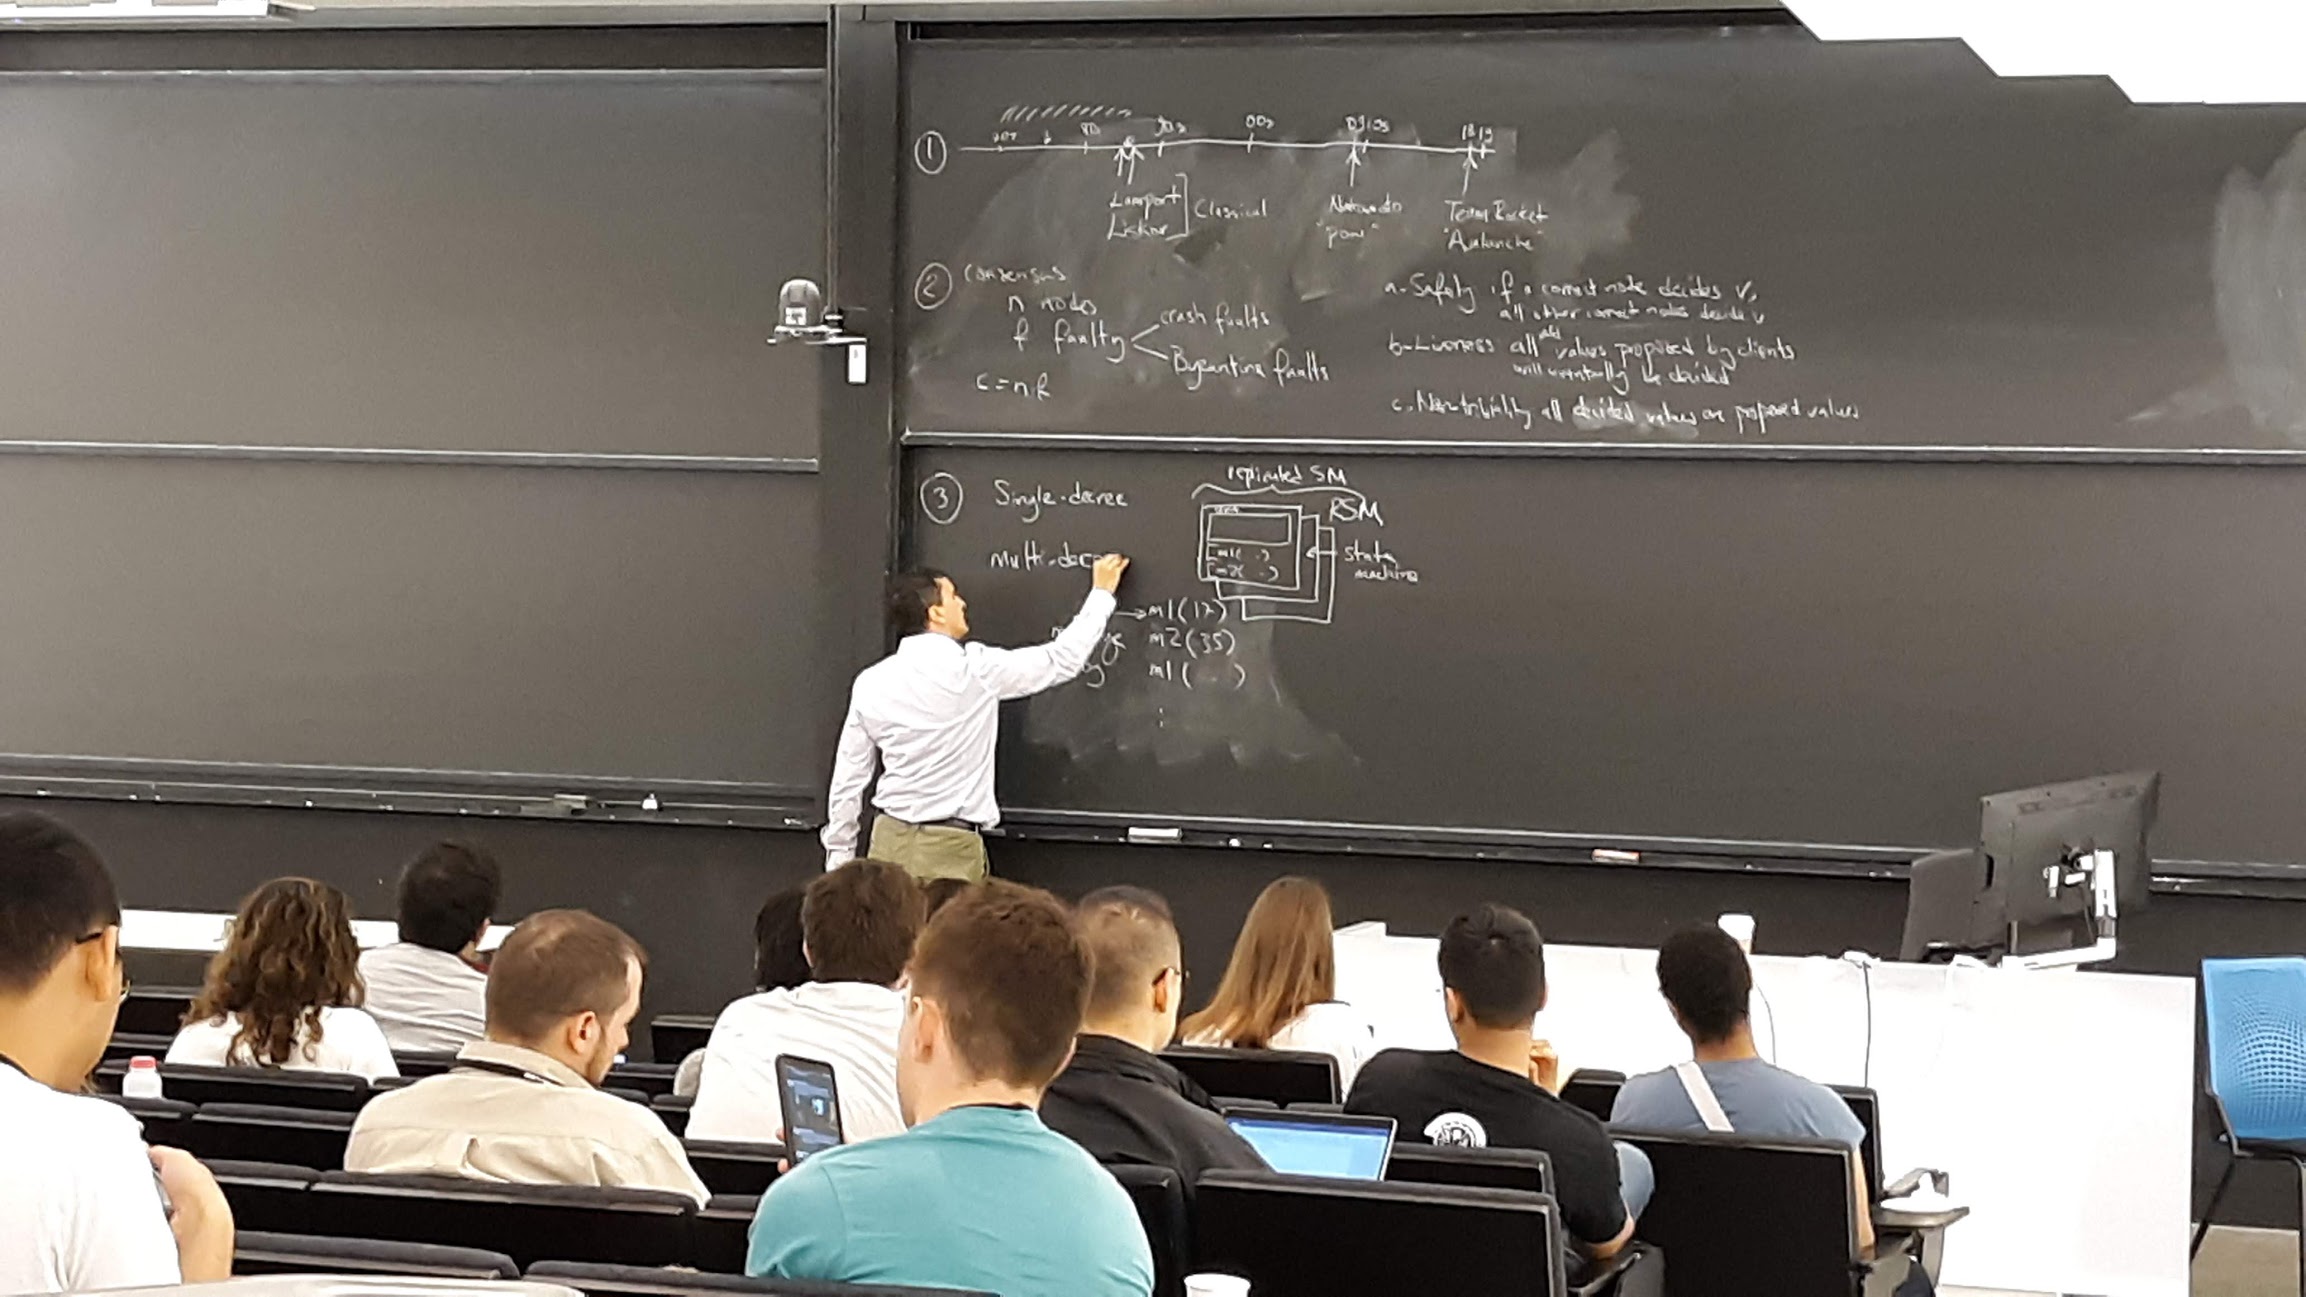 ①
80 90s 00s 09 10s 18 19
Lamport
Liskov
Classical
Nakamoto
"pow"
Team Rocket
"Avalanche"
② Consensus
n nodes
f faulty
crash faults
Byzantine faults
c = n-f
a - Safety if a correct node decides v,
all other correct nodes decide v
b - Liveness all values proposed by clients
will eventually be decided
c - Non-triviality all decided values are proposed values
③ Single-decree
Multi-dec
replicated SM
RSM
m1( )
m2( )
state
machine
m1(17)
m2(35)
m1( )
⋮